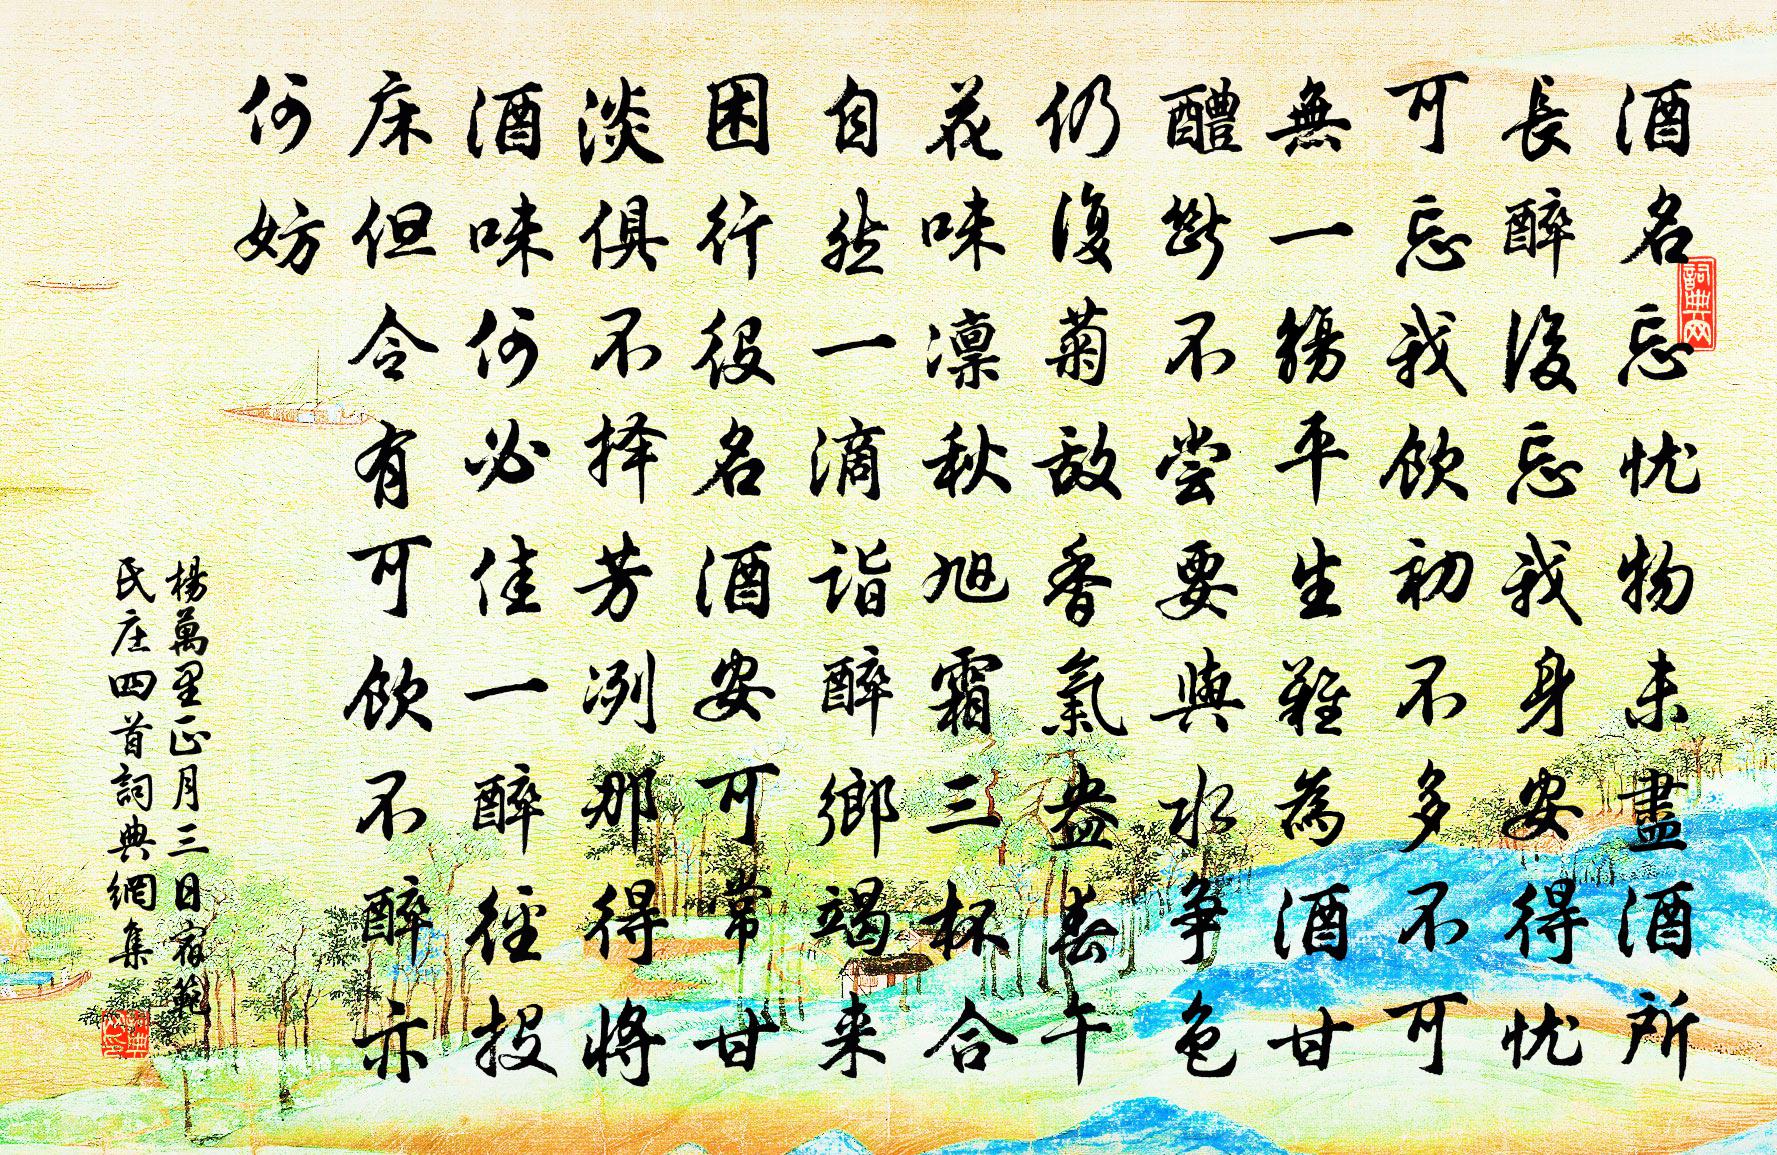 酒名忘忧物未盡酒所
長醉後忘我身安得忧
可忘我飲初不多不可
無一觴平生難為酒甘
醴斷不尝要與水争色
仍復菊敌香氣盎春午
花味凛秋旭霜三杯合
自然一滴詣醉鄉竭来
困行役名酒安可常甘
淡俱不择芳冽那得将
酒味何必佳一醉徑投
床但令有可飲不醉亦
何妨
楊萬里正月三日宿範
氏庄四首詞典網集
詞典网